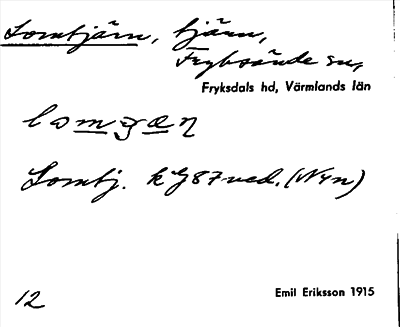 Lomtjärn, tjärn,
Fryksände sn,
Fryksdals hd, Värmlands län
Lomtj. kG 87 ved. (N4n)
12
Emil Eriksson 1915